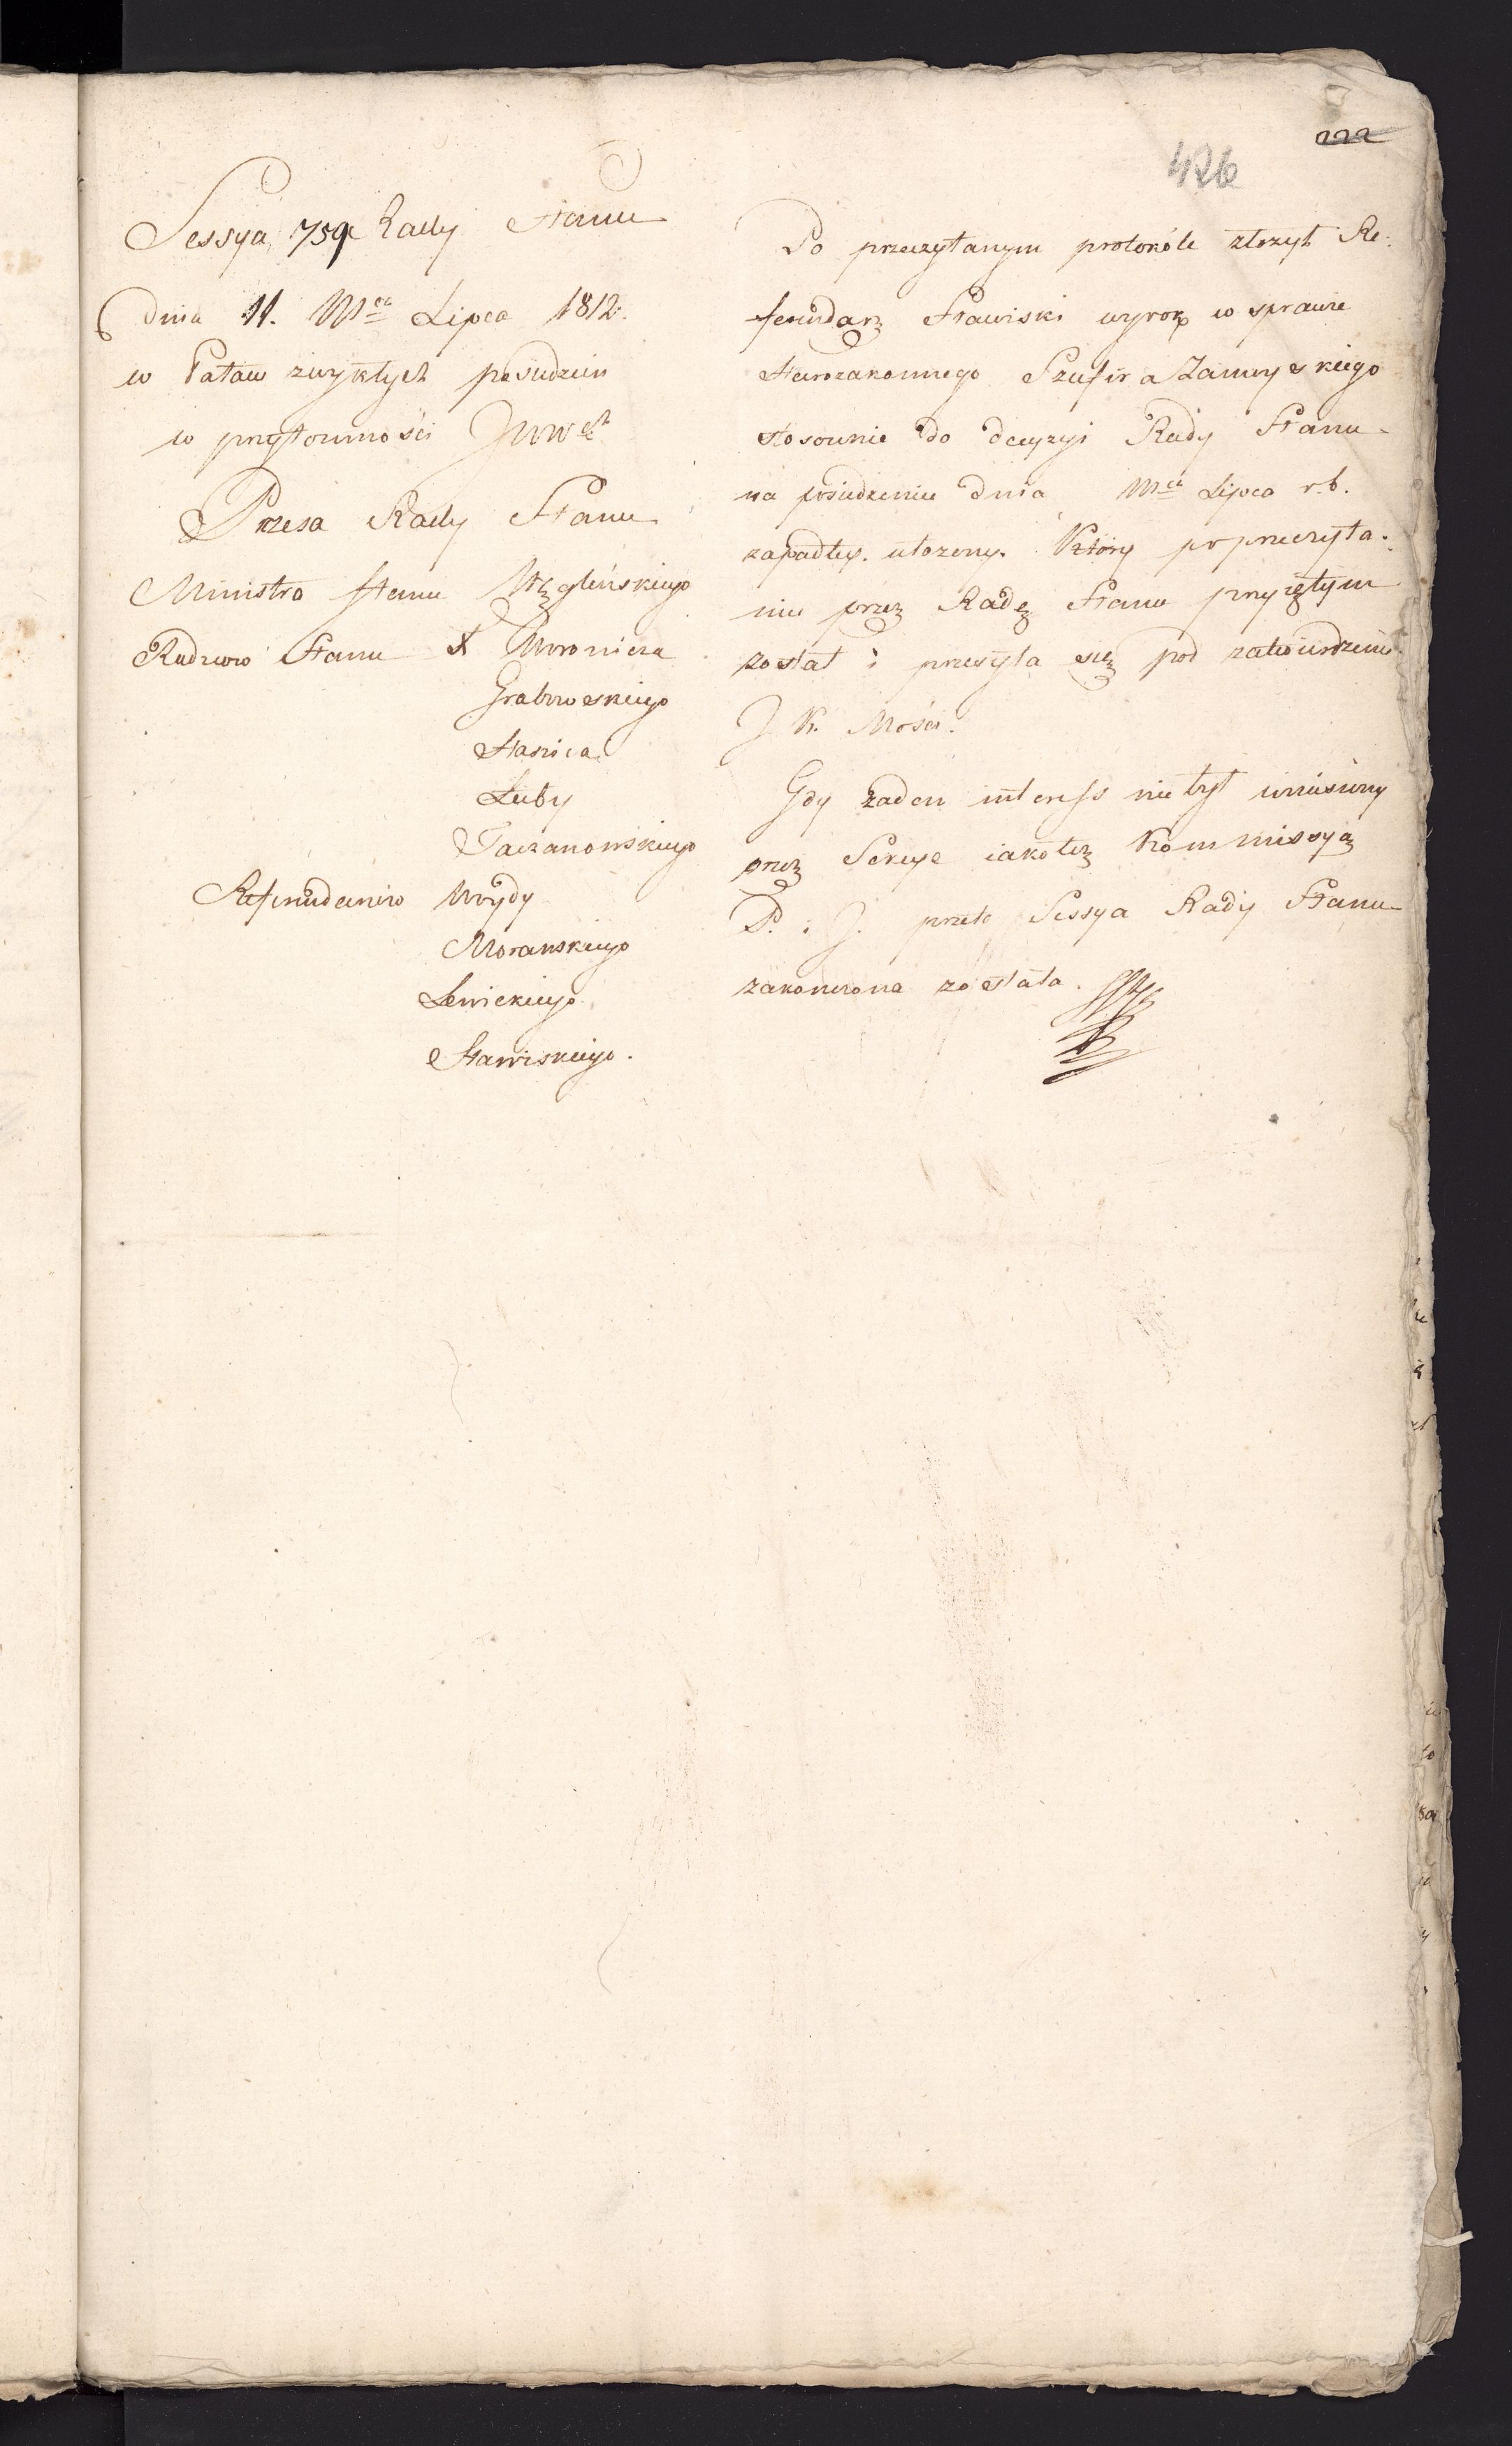 222
426
Sessya 759a Rady Stanu
dnia 11. Mca Lipca 1812.
w Pałacu zwykłych posiedzeń
w przytomności JWWch
Prezesa Rady Stanu
Ministra Stanu Węgleńskiego
Radzców Stanu X Woronicza
Grabowskiego
Stasica
Luby
Taczanowskiego
Referendarzów Woydy
Morawskiego
Lewickiego
Stawiskiego.
Po przeczytanym protokóle złożył Re-
ferendarz Stawiski wyrok w sprawie
Starozakonnego Szafira Zamoyskiego
stosownie do decyzyi Rady Stanu
na posiedzeniu dnia Mca Lipca r. b.
zapadłey ułożony. Który po przeczyta-
niu przez Radę Stanu przyiętym
został i przesyła się pod zatwierdzenie
J. K. Mości.
Gdy żaden interess nie był wniesiony
przez Sekcye iako też Kommissyą
P. i J. przeto Sessya Rady Stanu
zakończona została.